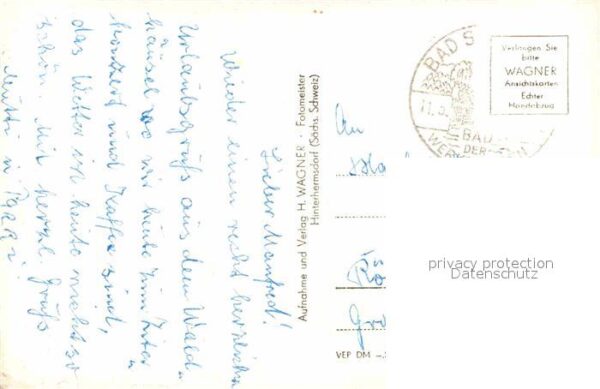 Lieber Manfred!
Wieder einen recht herzlichen
Urlaubsgruß aus dem Wald
häusel wo wir heute zum
Konzert und Kaffee sind,
das Wetter ist heute nicht so
schön. Mit herzl. Gruß
Mutti u. Pappi
Aufnahme und Verlag H. WAGNER · Fotomeister
Hinterhermsdorf (Sächs. Schweiz)
BAD S
11.5.
BAD
DER
WER
Verlangen Sie
bitte
WAGNER
Ansichtskarten
Echter
Handabzug
An
VEP DM –.
privacy protection
Datenschutz